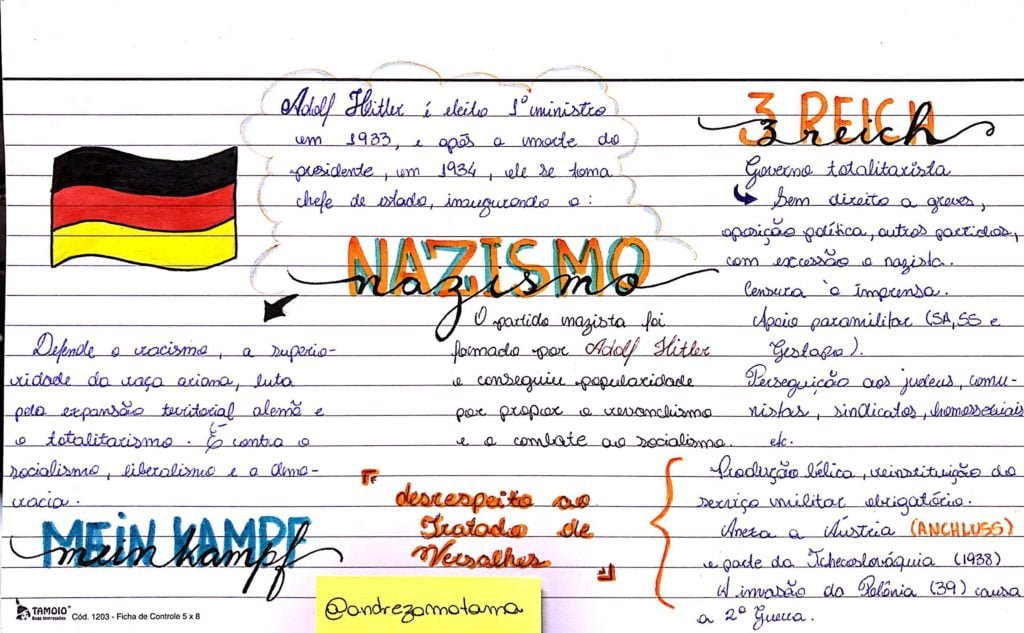 Adolf Hitler é eleito 1º ministro
em 1933, e após a morte do
presidente, em 1934, ele se torna
chefe de estado, inaugurando o:
NAZISMO
nazismo
O partido nazista foi
formado por Adolf Hitler
e conseguiu popularidade
por propor o revanchismo
e o combate ao socialismo.
Defende o racismo, a superio-
ridade da raça ariana, luta
pela expansão territorial alemã e
o totalitarismo. É contra o
socialismo, liberalismo e a demo-
cracia.
MEIN KAMPF
mein kampf
3 REICH
3 reich
Governo totalitarista
Sem direito a greves,
oposição política, outros partidos,
com excessão o nazista.
Censura à imprensa.
Apoio paramilitar (SA, SS e
Gestapo).
Perseguição aos judeus, comu-
nistas, sindicatos, homossexuais
etc.
desrespeito ao
Tratado de
Versalhes
Produção bélica, reinstituição do
serviço militar obrigatório.
Anexa a Áustria (ANCHLUSS)
e parte da Tchecoslováquia (1938)
A invasão da Polônia (39) causa
a 2º Guerra.
TAMOIO
Cód. 1203 - Ficha de Controle 5 x 8
@andrezamotama